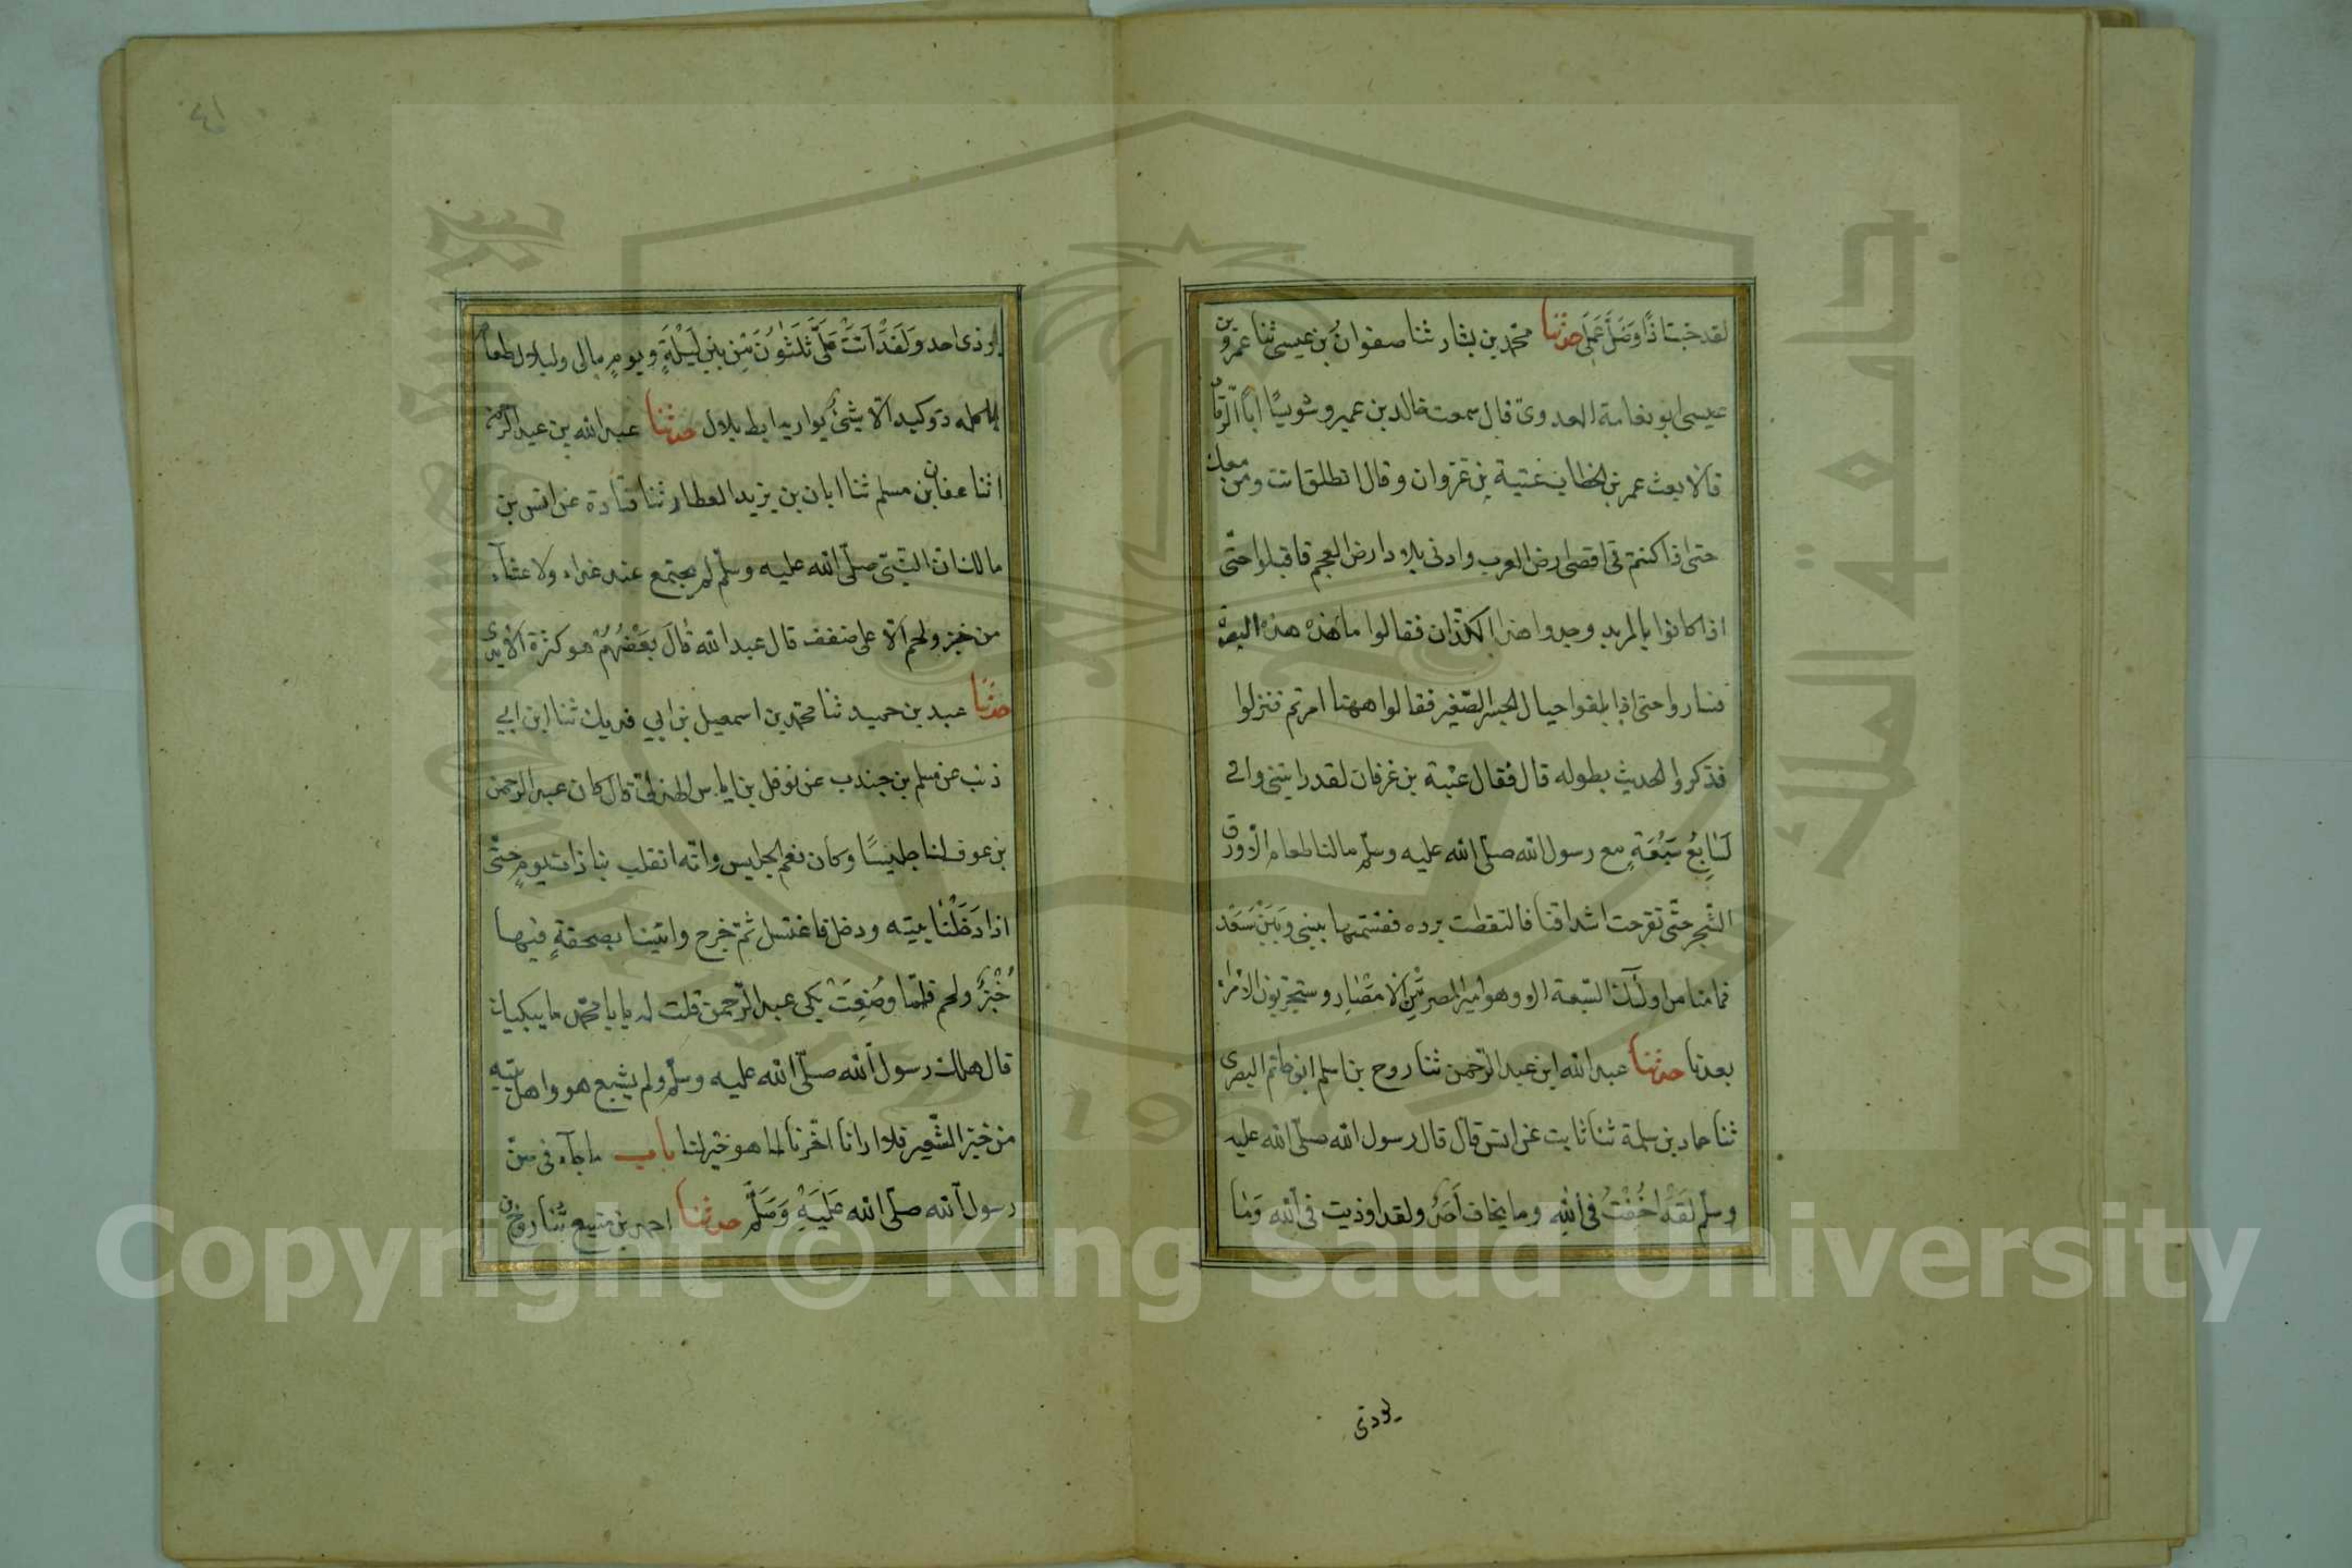 لقد خبت اذًا وَضَلَّ عَمَلِى حدثنا محمّد بن بشار ثنا صفوانُ بن عيسى ثنا عمرو بن
عيسى ابو نعامة العدوىّ قال سمعت خالد بن عمير وشويسًا ابا الرّقاد
قالا بعث عمر بن الخطاب عتبة بن غزوان وقال انطلق انت ومن معك
حتى اذا كنتم فى اقصى ارض العرب وادنى بلاد ارض العجم فاقبلوا حتّى
اذا كانوا بالمربد وجدوا هذا الكذّان فقالوا ما هذه هذه البصرة
فساروا حتى اذا بلغوا حيال الجسر الصّغير فقالوا ههنا امرتم فنزلوا
فذكروا الحديث بطوله قال فقال عتبة بن غزفان لقد رايتنى وانى
لَسَابِعُ سَبْعَةٍ مع رسول الله صلّى الله عليه وسلّم ما لنا طعام الّا ورق
الشّجر حتّى تقرحت اشداقنا فالتقطت برده فقسمتها بينى وَبَيْنَ سَعْد
فما منا من اولٓئك السّبعة الا وهو امير المصر مِّنَ الامْصَارِ وستجرّبون الامراء
بعدنا حدثنا عبد الله ابن عبد الرّحمن ثنا روح بن اسلم ابو حاتم البصرى
ثنا حماد بن سلمة ثنا ثابت عن انس قال قال رسول الله صلّى الله عليه
وسلّم لقَدْ اُخِفْتُ فى الله وما يخاف اَحَدٌ ولقد اوذيت فى الله وَمَا
يوذى
٤١
يوذى احد وَلَقَدْ اَتَتْ عَلَىَّ ثَلٰثُونَ مِن بينِ لَيْلَةٍ ويومٍ مالى ولبلال طعام
ياكله ذو كبد الّا شئٌ يواريه ابط بلال حدثنا عبد الله بن عبد الرحمن
انا عفان بن مسلم ثنا ابان بن يزيد العطار ثنا قتادة عن انس بن
مالك ان النّبىّ صلّى الله عليه وسلّم لم يجتمع عنده غداء ولا عشآء
من خبز ولحم الّا على ضفف قال عبد الله قَالَ بَعْضُهُمْ هو كثرة الايدى
حدثنا عبد بن حميد ثنا محمّد بن اسمعيل بن ابي فديك ثنا ابن ابي
ذئب عن مسلم بن جندب عن نوفل بن اياس الهذلىّ قال كان عبد الرحمن
بن عوف لنا جليسًا وكان نعم الجليس وانّه انقلب بنا ذات يومٍ حتّى
اذا دَخَلْنَا بيته ودخل فاغتسل ثمّ خرج واتينا بصحفةٍ فيها
خُبْزٌ ولحم فلمّا وضُعِتَ بكى عبد الرّحمن قلت له يا با محمّد ما يبكيك
قال هلك رسول الله صلّى الله عليه وسلّم ولم يشبع هو واهل بيته
من خبز الشّعير فلا ارانا اخّرنا لما هو خير لنا باب ما جآء فى سنّ
رسول الله صلّى الله عَلَيْهِ وَسَلَّم حدثنا احمد بن منيع ثنا روح بن
Copyright © King Saud University